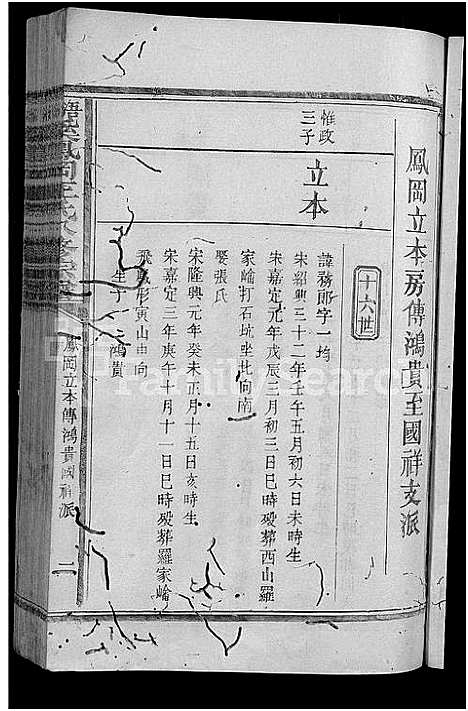 鳳岡立本房傳鴻貴至國祥支派
十六世
惟政
三子
立本
諱務郎字一均
宋紹興三十二年壬午五月初六日未時生
宋嘉定元年戊辰三月初三日巳時歿葬西山羅
家崙打石坑坐北向南
娶張氏
宋隆興元年癸未正月十五日亥時生
宋嘉定三年庚午十月十一日巳時歿葬羅家崙
飛鳳形寅山申向
生子一鴻貴
鳳岡立本傳鴻貴國祥派
二
FamilySearch